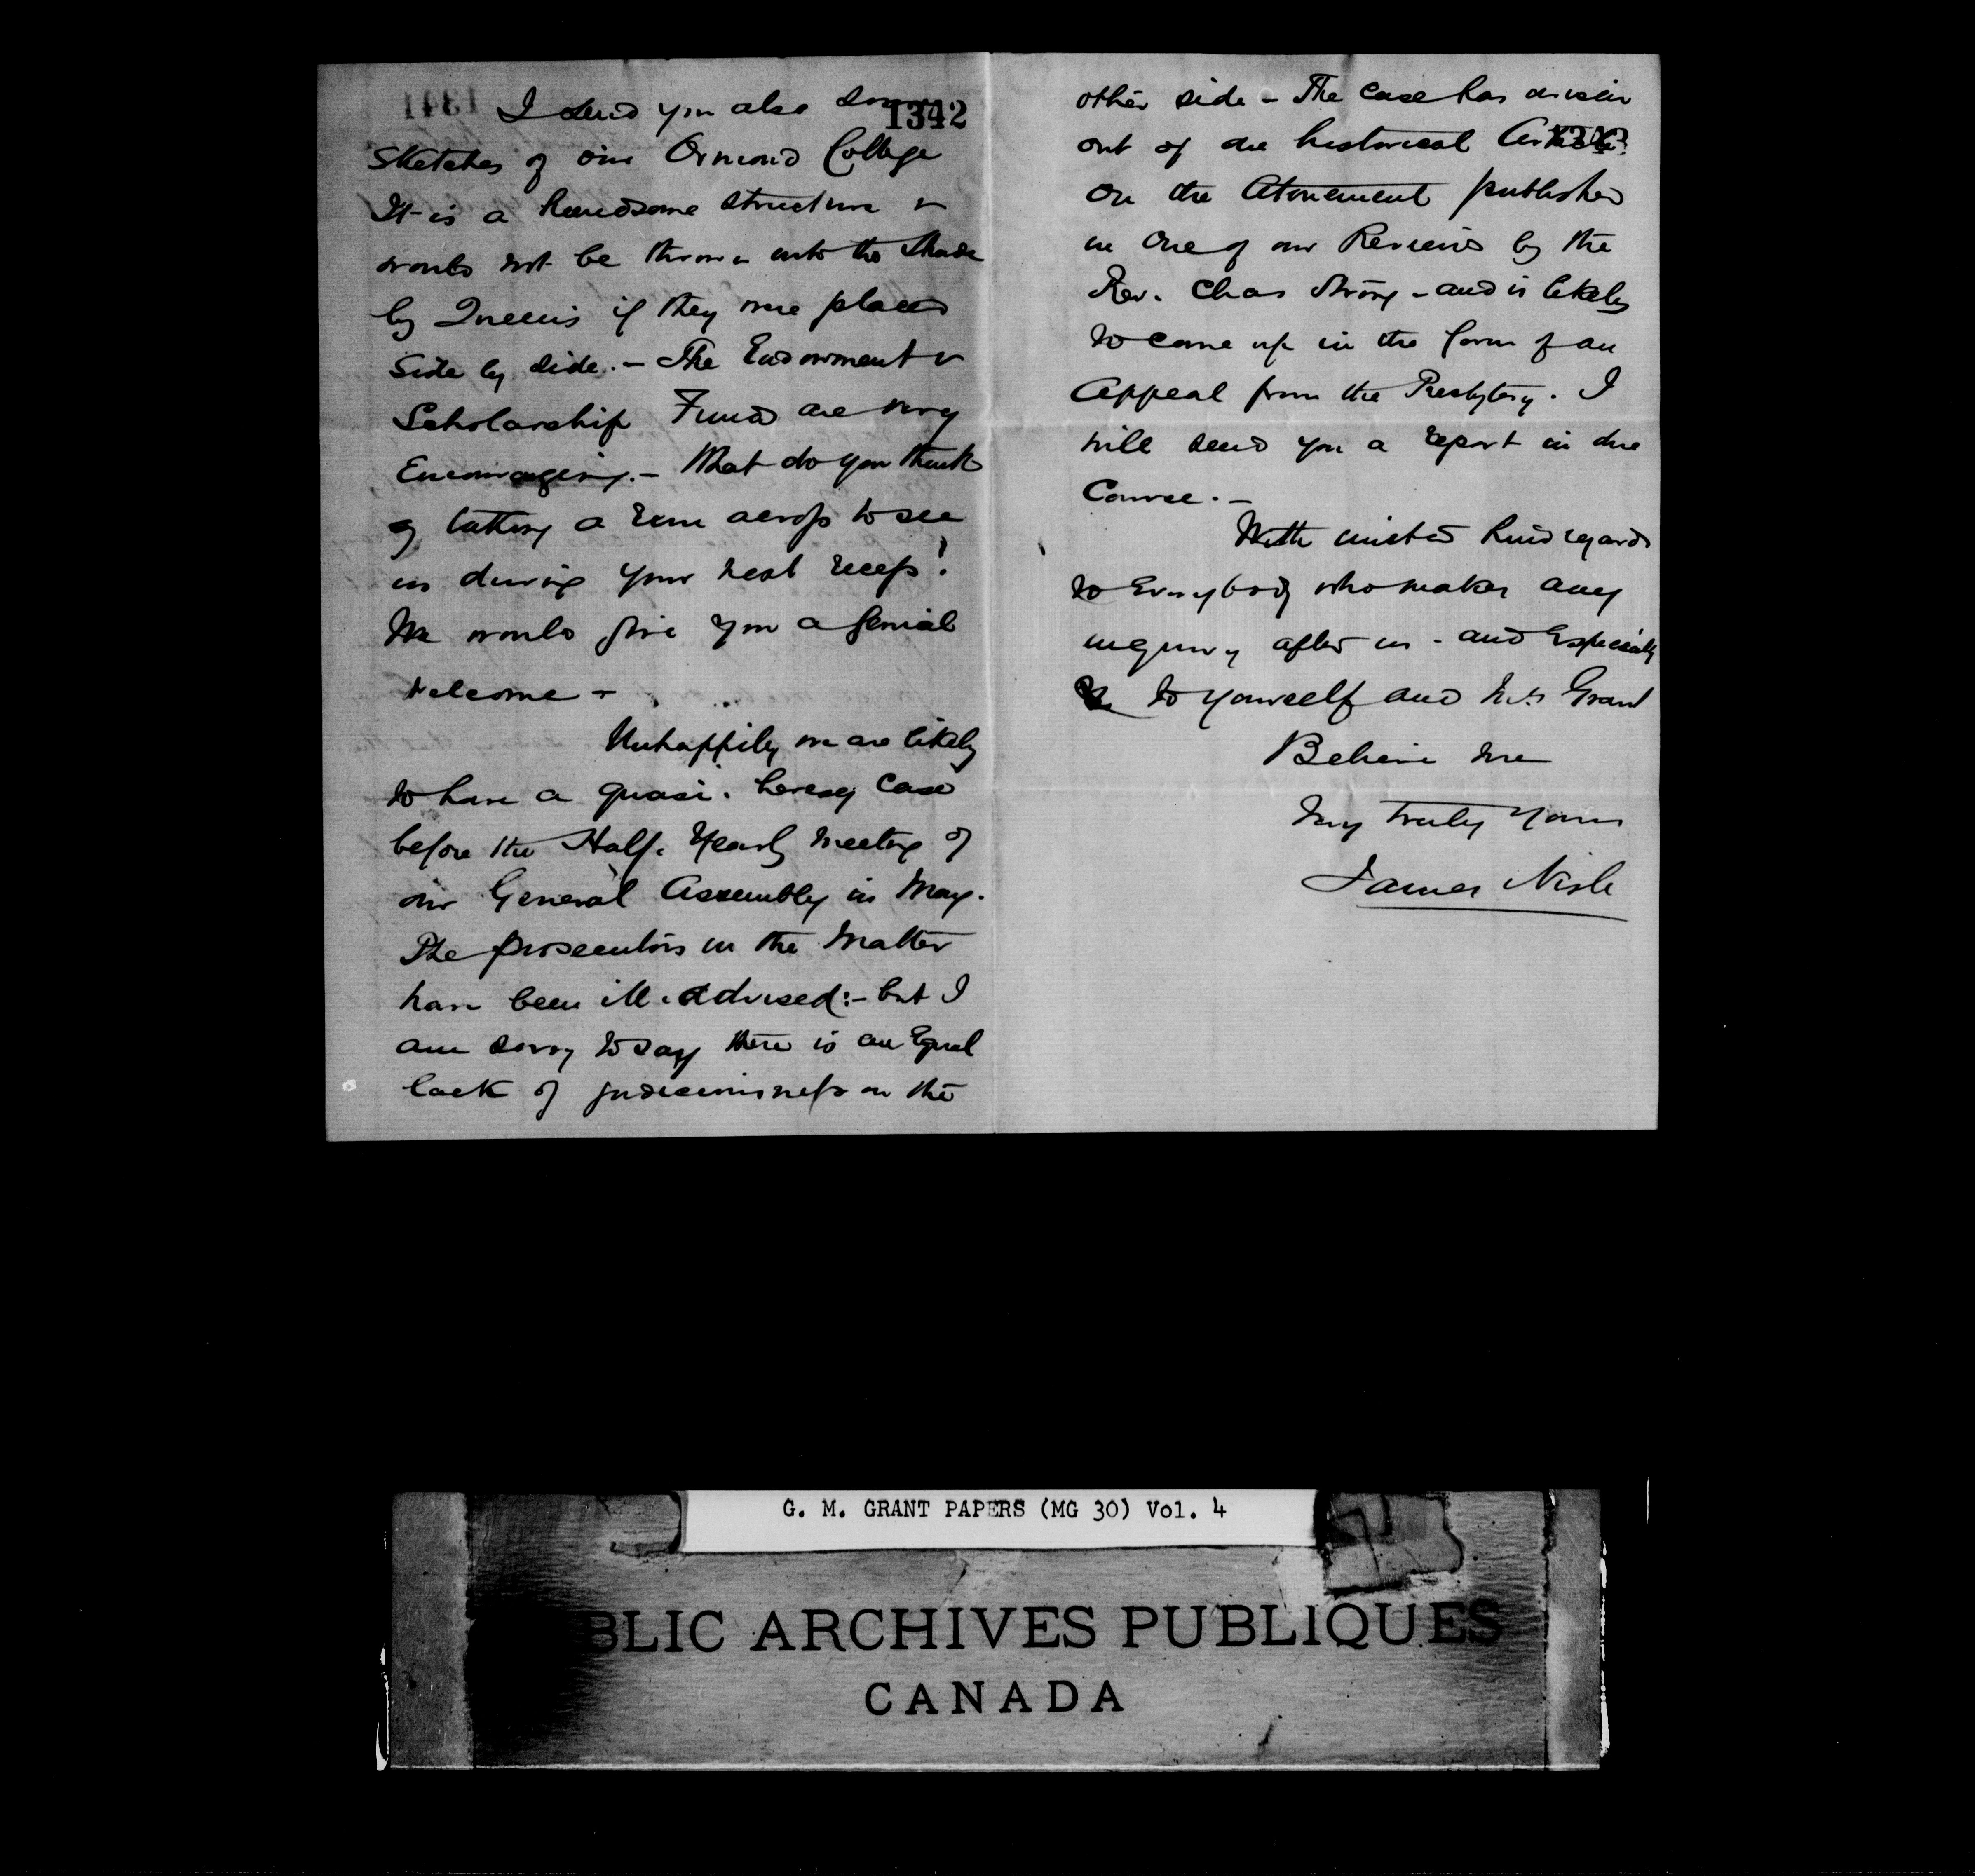 1342
I send you also some
Sketches of our Ormond College
It is a handsome structure &
would not be thrown into the shade
by Queens if they were placed
side by side. — The Endowment &
Scholarship Fund are very
Encouraging. — What do you think
of taking a run across to see
us during your next recess?
We would give you a genial
welcome —
Unhappily we are likely
to have a quasi-heresy case
before the Half-Yearly Meeting of
our General Assembly in May.
The prosecutors in the matter
have been ill-advised: — but I
am sorry to say there is an Equal
lack of judiciousness on the
other side — The case has arisen
out of the historical Article
on the Atonement published
in one of our Reviews by the
Rev. Chas Strong — and is likely
to come up in the form of an
Appeal from the Presbytery. I
will send you a report in due
Course. —
With united kind regards
to Everybody who makes any
inquiry after us — and Especially
to yourself and Mrs Grant
Believe me
Very truly yours
James
G. M. GRANT PAPERS (MG 30) Vol. 4
BLIC ARCHIVES PUBLIQUES
CANADA